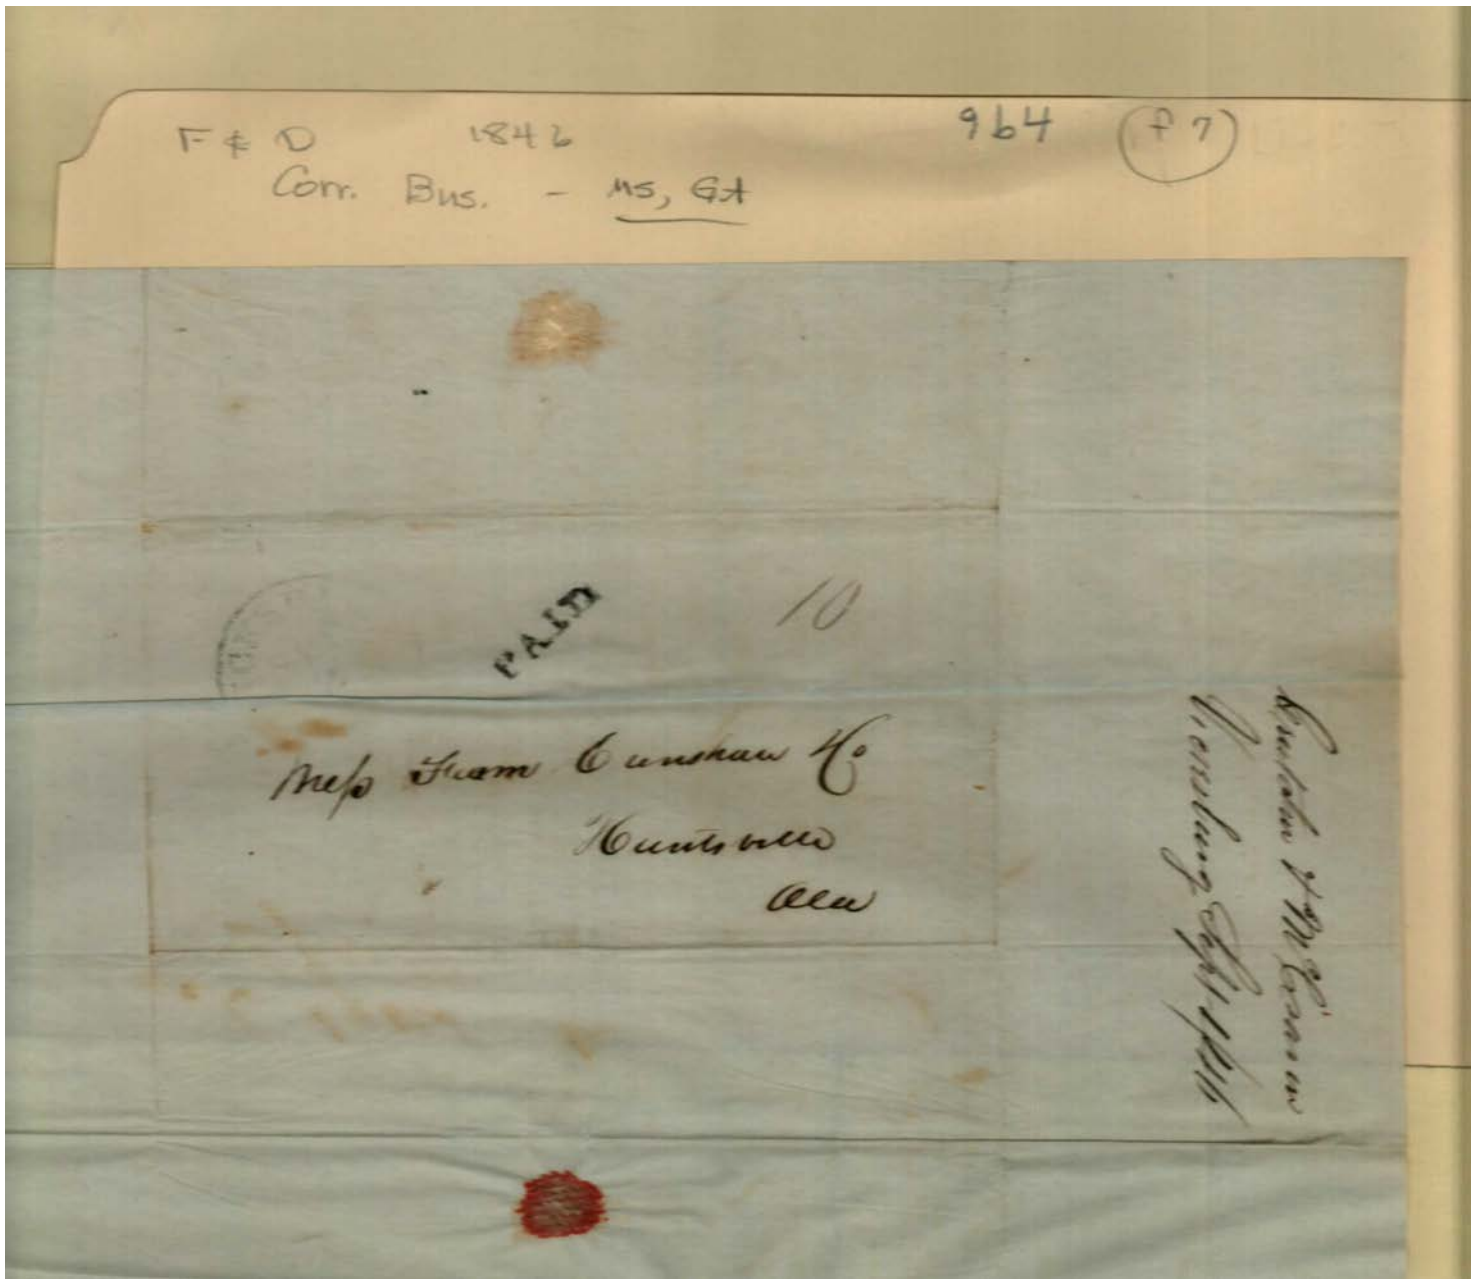 F & D 1846 9b4 f 7
Corr. Bus. - MS, GA
PAID
10
Mess Fearn Crenshaw & Co
Huntsville
Ala
& McCranin
Vicksburg Sept 1846